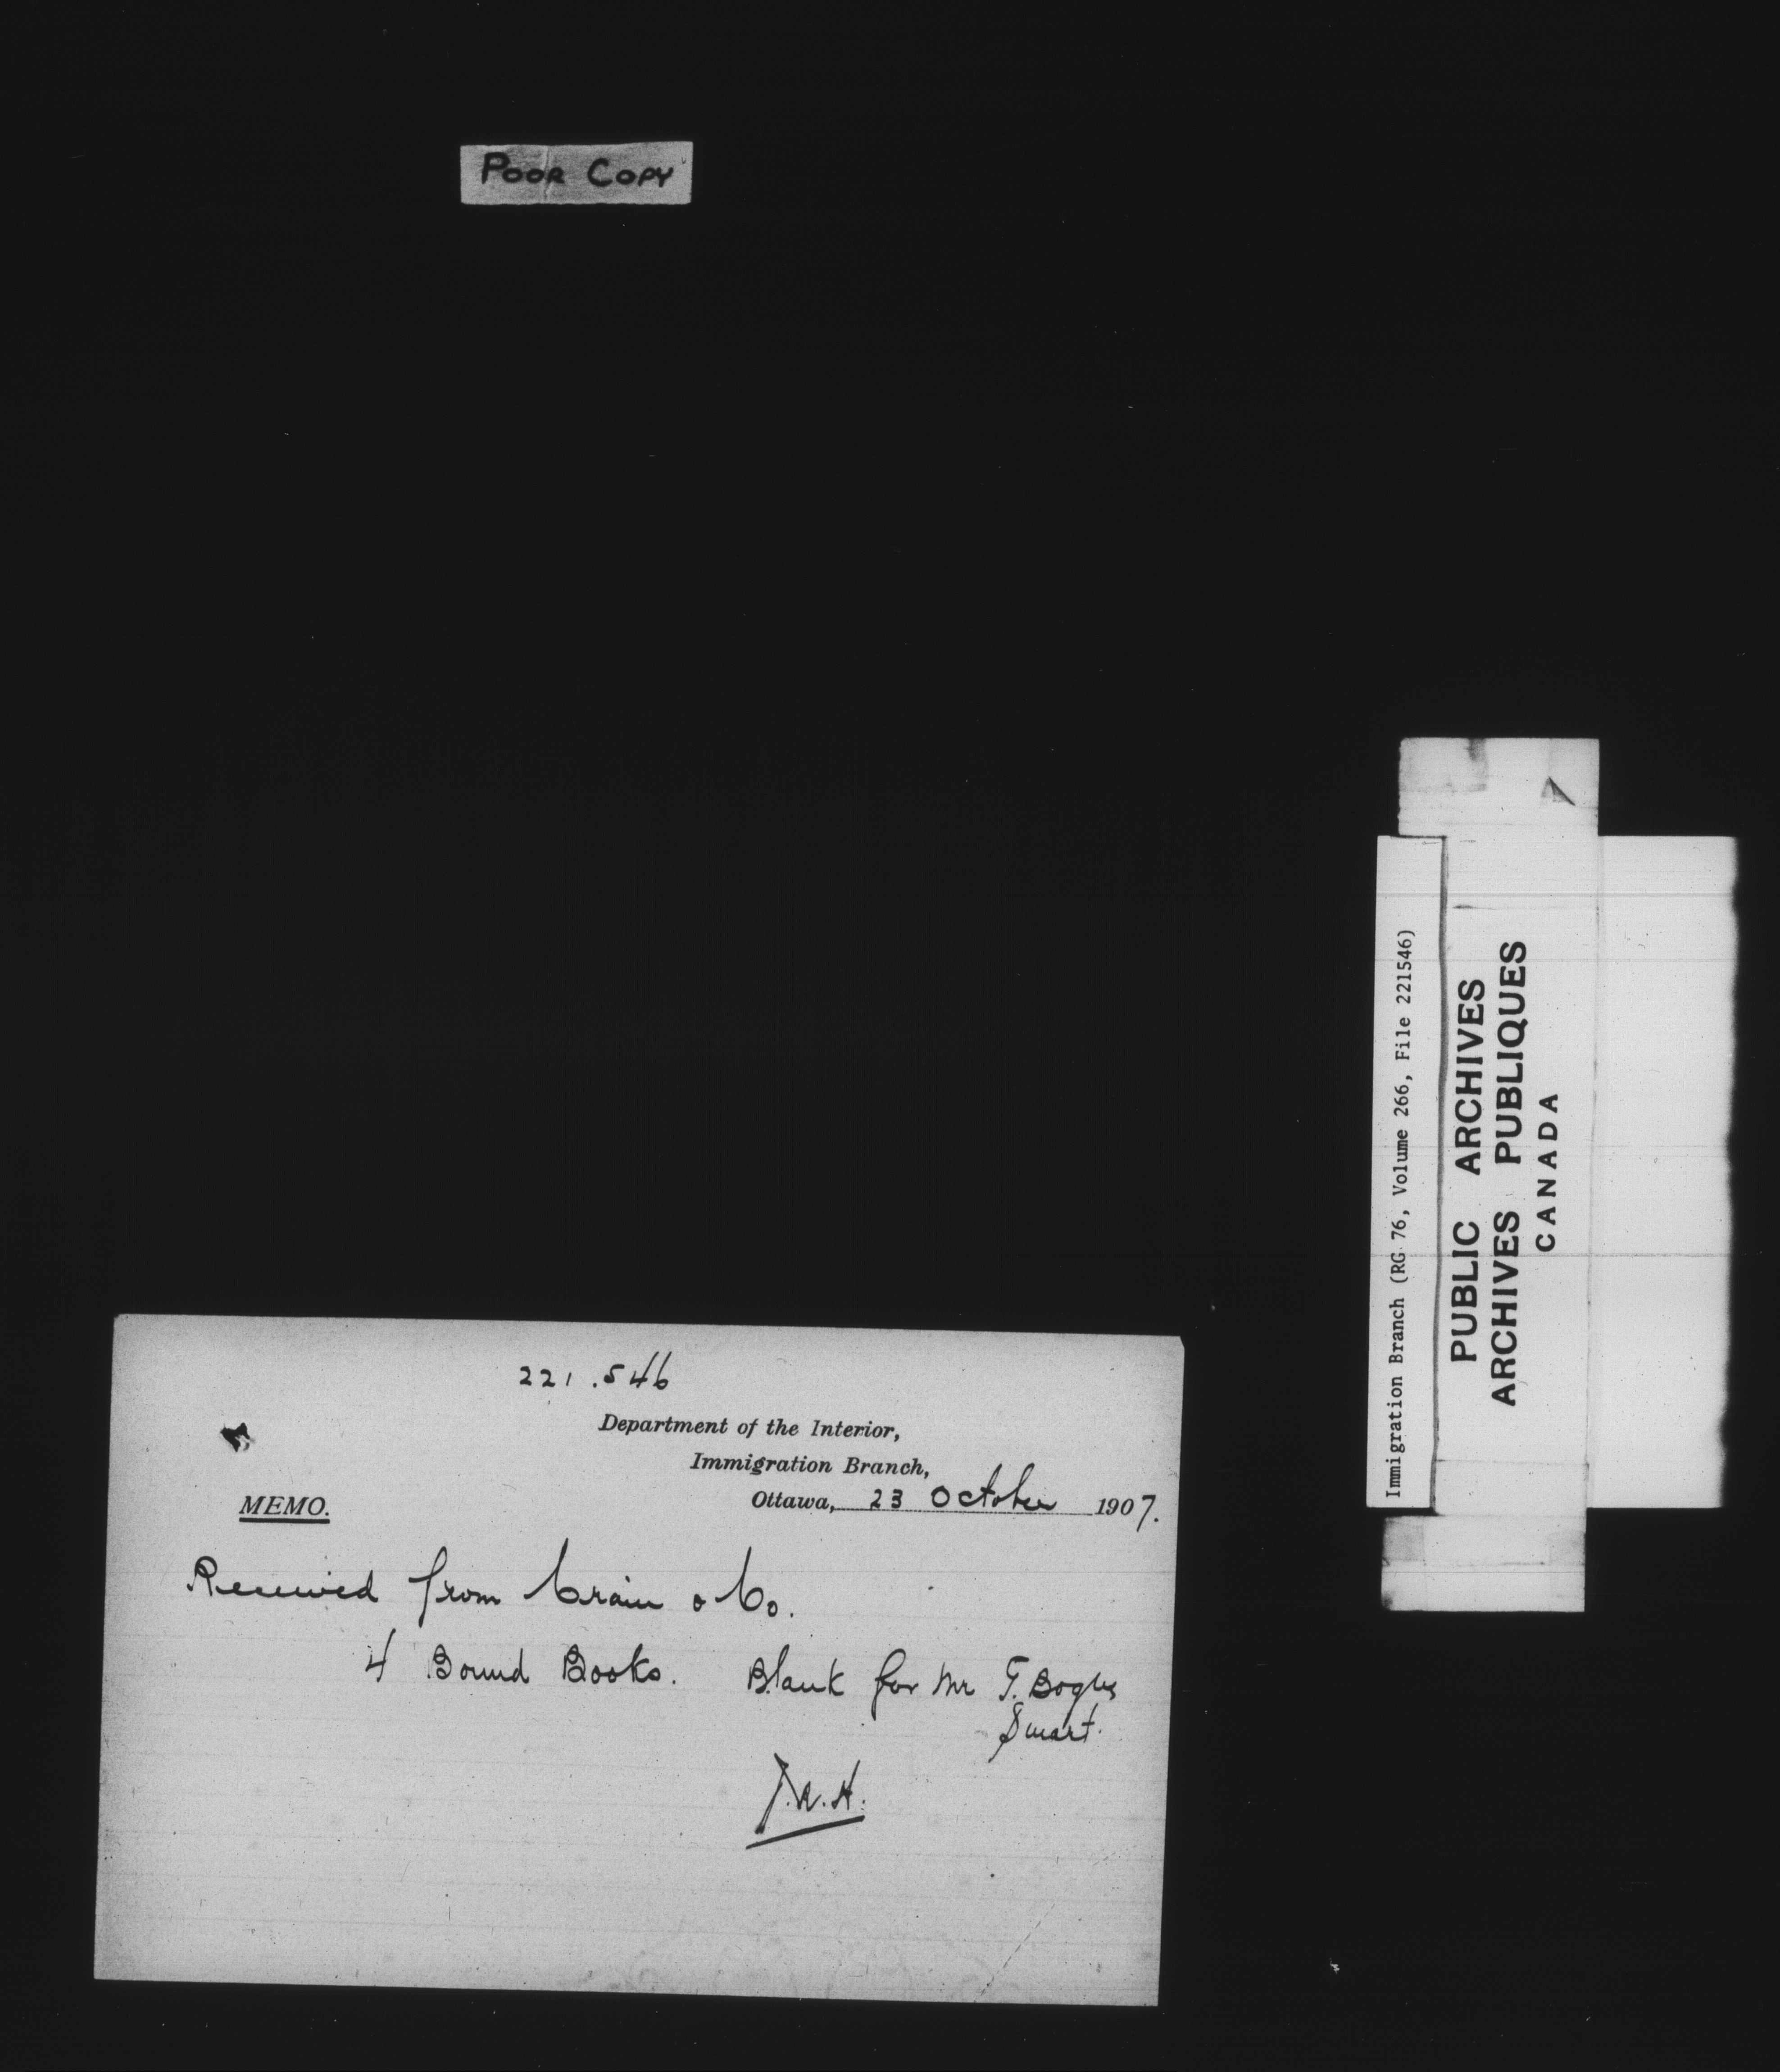 POOR COPY
221.546
Department of the Interior,
Immigration Branch,
Ottawa, 23 October 1907.
MEMO.
Received from Crain & Co.
4 Bound Books. Blank for Mr G. Bogue
Smart.
Immigration Branch (RG 76, Volume 266, File 221546)
PUBLIC ARCHIVES
ARCHIVES PUBLIQUES
CANADA